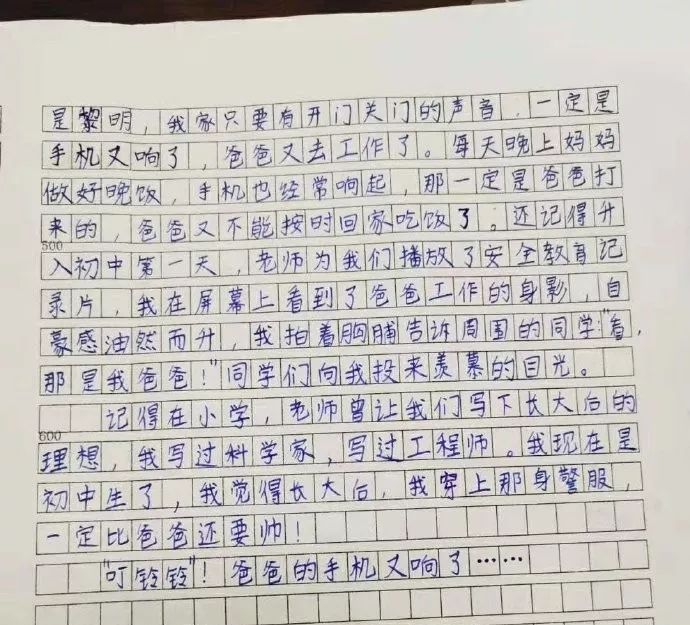 是黎明，我家只要有开门关门的声音，一定是
手机又响了，爸爸又去工作了。每天晚上妈妈
做好晚饭，手机也经常响起，那一定是爸爸打
来的，爸爸又不能按时回家吃饭了。还记得升
500
入初中第一天，老师为我们播放了安全教育记
录片，我在屏幕上看到了爸爸工作的身影，自
豪感油然而升，我拍着胸脯告诉周围的同学:"看，
那是我爸爸！"同学们向我投来羡慕的目光。
记得在小学，老师曾让我们写下长大后的
600
理想，我写过科学家，写过工程师。我现在是
初中生了，我觉得长大后，我穿上那身警服，
一定比爸爸还要帅！
"叮铃铃"！爸爸的手机又响了……